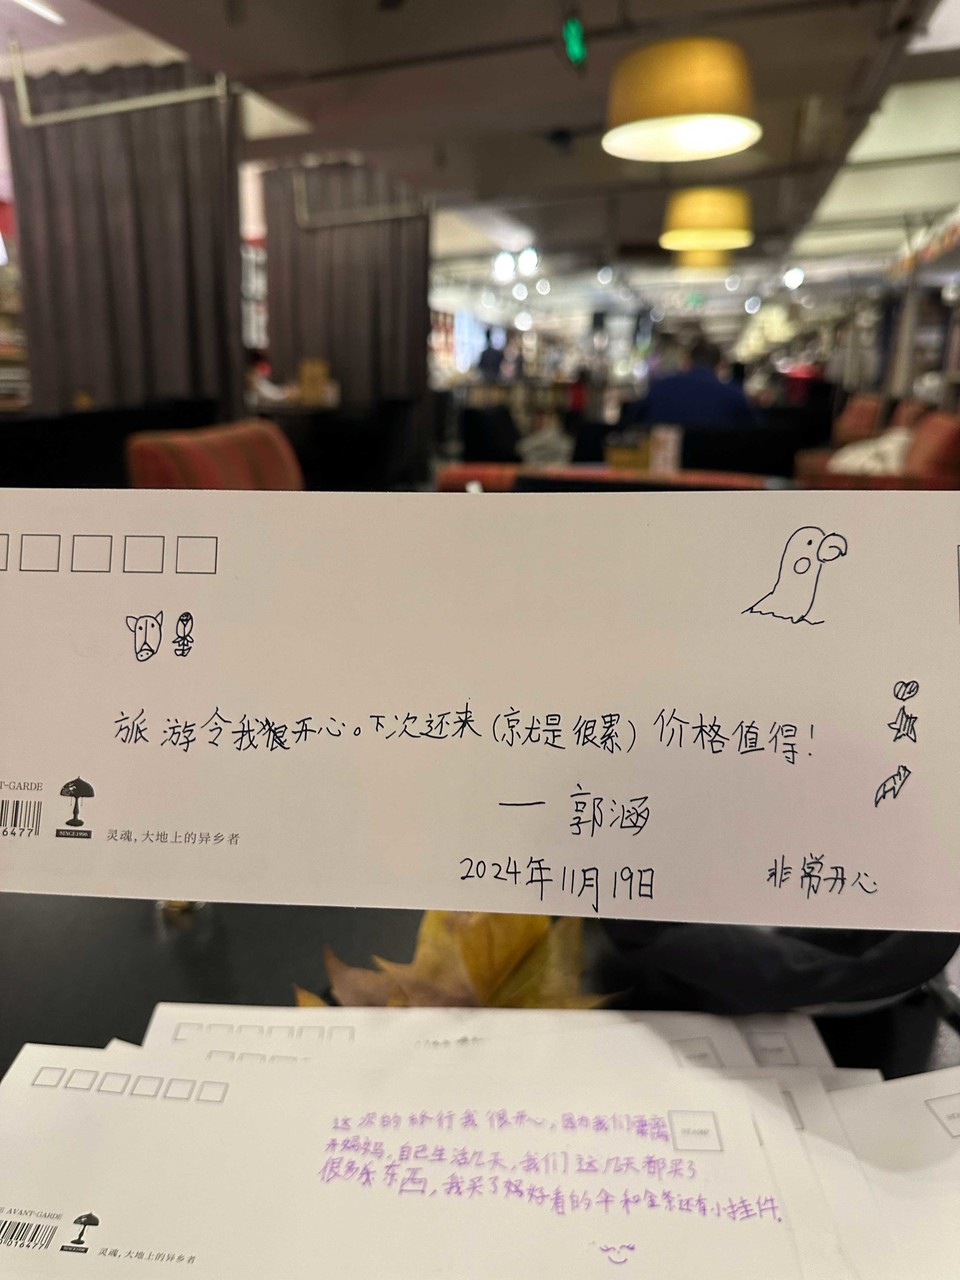 旅游令我狠开心。下次还来(京尤是很累)价格值得!
— 郭涵
2024年11月19日
非常开心
T-GARDE
6477
SINCE1996
灵魂,大地上的异乡者
这次的旅行我很开心,因为我们要离
开妈妈,自己生活几天,我们这几天都买了
很多东西,我买了妈好看的伞和金条还有小挂件.
AVANT-GARDE
016477
灵魂,大地上的异乡者